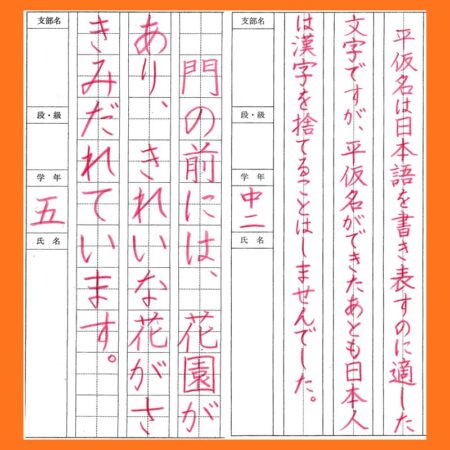 平仮名は日本語を書き表すのに適した
文字ですが、平仮名ができたあとも日本人
は漢字を捨てることはしませんでした。
支部名
段・級
学年
中二
氏名
門の前には、花園が
あり、きれいな花がさ
きみだれています。
支部名
段・級
学年
五
氏名